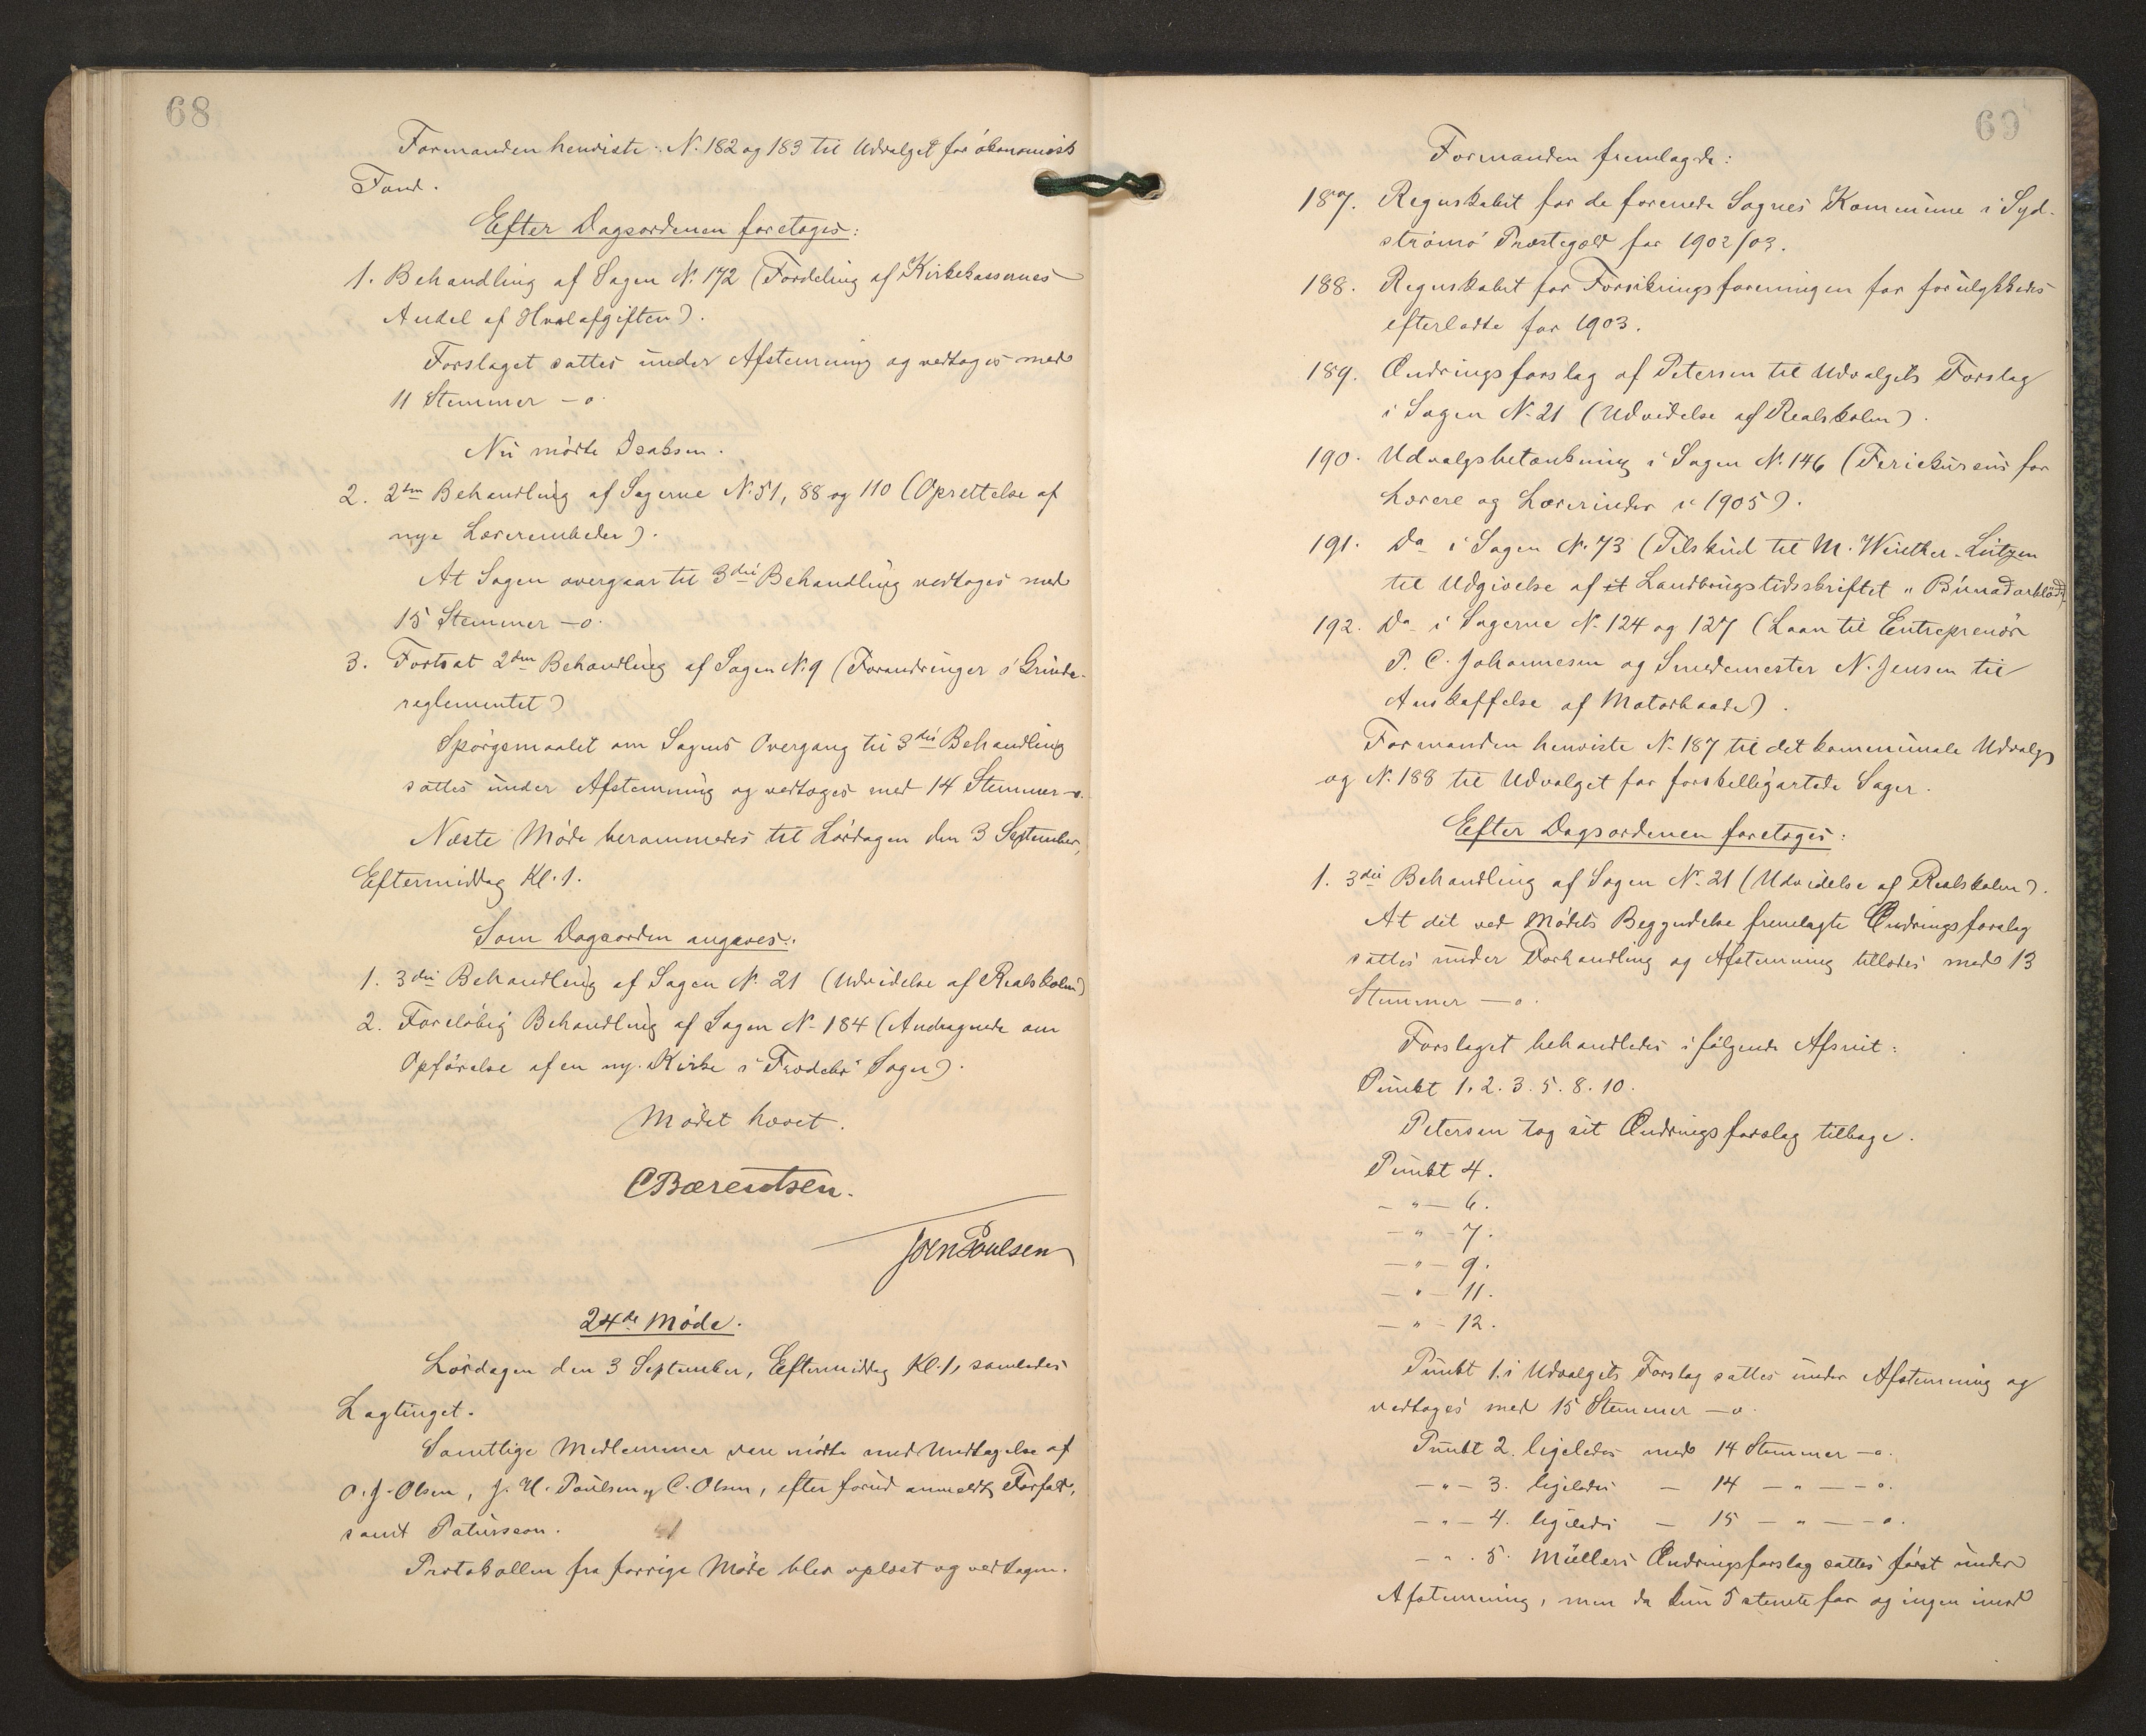 68
Formanden henviste N. 182 og 183 til Udvalget for økonomisk
Fond.
Efter Dagsordenen foretoges:
1. Behandling af Sagen N. 172 (Fordeling af Kirkekassernes
Andel af Hvalafgiften).
Forslaget sattes under Afstemning og vedtoges med
11 Stemmer – o.
Nu mødte Isaksen.
2. 2den Behandling af Sagerne N. 51, 88 og 110 (Oprettelse af
nye Lærerembeder).
At Sagen overgaar til 3die Behandling vedtoges med
15 Stemmer – o.
3. Fortsat 2den Behandling af Sagen N. 9 (Forandringer i Grinde-
reglementet)
Spørgsmaalet om Sagens Overgang til 3die Behandling
sattes under Afstemning og vedtoges med 14 Stemmer – o.
Næste Møde berammedes til Lørdagen den 3 September,
Eftermiddag Kl. 1.
Som Dagsorden angaves:
1. 3die Behandling af Sagen N. 21 (Udvidelse af Realskolen)
2. Foreløbig Behandling af Sagen N. 184 (Andragende om
Opførelse af en ny Kirke i Frodebø Sogn).
Mødet hævet.
CBærentsen.
Joen Poulsen
24de Møde.
Lørdagen den 3 September, Eftermiddag Kl. 1, samledes
Lagtinget.
Samtlige Medlemmer vare mødte med Undtagelse af
O. J. Olsen, J. H. Poulsen og C. Olsen, efter forud anmeldt Forfald,
samt Patursson.
Protokollen fra forrige Møde blev oplæst og vedtagen.
69
Formanden fremlagde:
187. Regnskabet for de forenede Sognes Kommune i Syd-
strømø Præstegæld for 1902/03.
188. Regnskabet for Forsikringsforeningen for forulykkedes
efterladte for 1903.
189. Ændringsforslag af Petersen til Udvalgets Forslag
i Sagen N. 21 (Udvidelse af Realskolen).
190. Udvalgsbetænkning i Sagen N. 146 (Feriekursus for
Lærere og Lærerinder i 1905).
191. Do i Sagen N. 73 (Tilskud til M. Winther-Lützen
til Udgivelse af et Landbrugstidsskriftet „Búnadarblad"
192. Do i Sagerne N. 124 og 127 (Laan til Entreprenør
P. C. Johannesen og Smedemester N. Jensen til
Anskaffelse af Motorbaade).
Formanden henviste N. 187 til det kommunale Udvalg
og N. 188 til Udvalget for forskelligartede Sager.
Efter Dagsordenen foretoges:
1. 3die Behandling af Sagen N. 21 (Udvidelse af Realskolen).
At det ved Mødets Begyndelse fremlagte Ændringsforslag
sattes under Forhandling og Afstemning tillodes med 13
Stemmer – o.
Forslaget behandledes i følgende Afsnit:
Punkt 1. 2. 3. 5. 8. 10.
Petersen tog sit Ændringsforslag tilbage.
Punkt 4.
– „ – 6.
– „ – 7.
– „ – 9.
– „ – 11.
– „ – 12.
Punkt 1. i Udvalgets Forslag sattes under Afstemning og
vedtoges med 15 Stemmer – o.
Punkt 2. ligeledes med 14 Stemmer – o.
– „ – 3. ligeledes – 14 – „ – – o.
– „ – 4. ligeledes – 15 – „ – – o.
– „ . 5. Müllers Ændringsforslag sattes først under
Afstemning, men da kun 5 stemte for og ingen imod